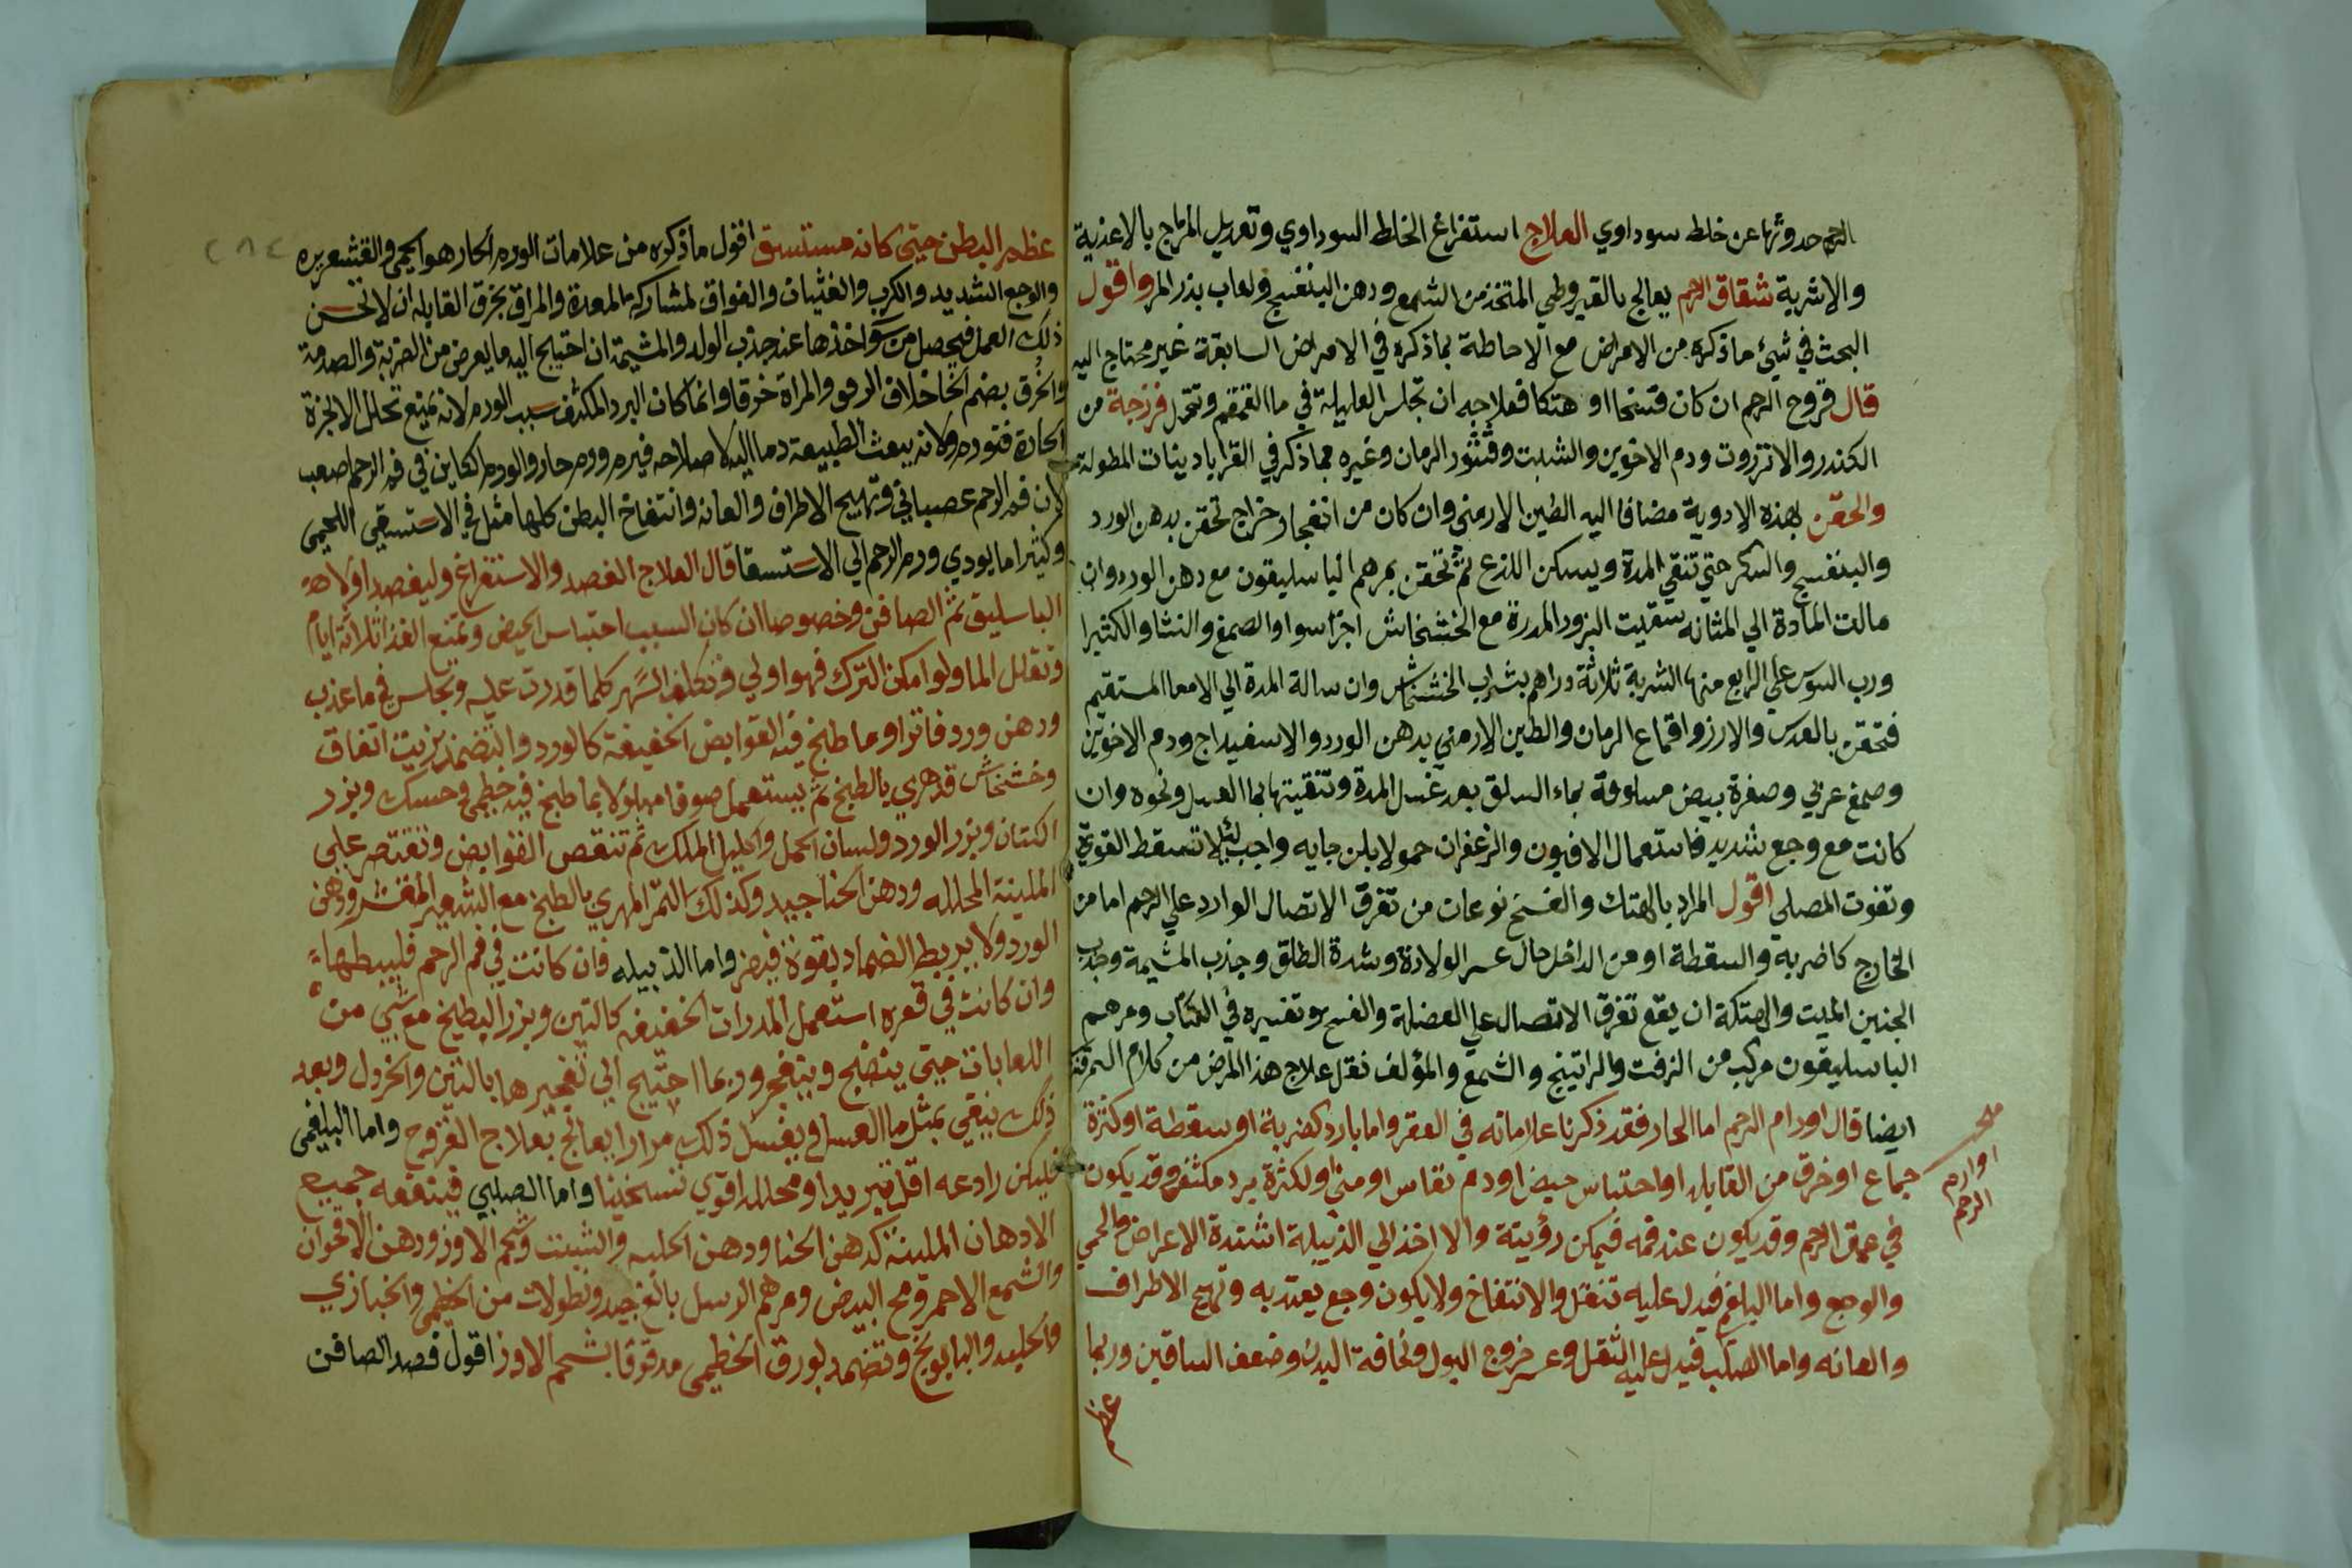 الرحم حدوثها عن خلط سوداوي العلاج استفراغ الخلط السوداوي وتعديل المزاج بالاغذية
والاشربة شقاق الرحم يعالج بالقيروطي المتخذ من الشمع ودهن البنفسج ولعاب بذر المر واقول
البحث في شيئ ما ذكره من الامراض مع الاحاطة بما ذكره في الامراض السابقة غير محتاج اليه
قال قروح الرحم ان كان فتنخا او هتكا فعلاجه ان تجلس العليلة في ما القمقم وتتحمل فرزجة من
الكندر والانزروت ودم الاخوين والشبت وقشور الرمان وغيره مما ذكر في القراباد ينات المطولة
والحقن بهذه الادوية مضافا اليه الطين الارمني وان كان من انفجار خراج تحقن بدهن الورد
والبنفسج والسكر حتي تنقي المدة ويسكن اللذع ثم تحقن بمرهم الباسليقون مع دهن الورد وان
مالت المادة الي المثانه سقيت البزور المدرة مع الخشخاش اجزا سوا والصمغ والنشا والكثيرا
ورب السوس علي الرابع منها الشربة ثلاثة دراهم بشراب الخشخاش وان سالة المدة الي الامعا المستقيم
فتحقن بالعدس والارز واقماع الرمان والطين الارمني بدهن الورد والاسفيداج ودم الاخوين
وصمغ عربي وصفرة بيض مسلوقة بماء السلق بعد غسل المدة وتنقيتها بما العسل ونحوه وان
كانت مع وجع شديد فاستعمال الافيون والزعفران حمولا بلبن جايه واجب لئلا تسقط القوة
وتفوت المصلي اقول المراد بالهتك والفسخ نوعان من تفرق الاتصال الوارد علي الرحم اما من
الخارج كاضربه والسقطة او من الداخل حال عسر الولادة وشدة الطلق وجذب المشيمة وجذب
الجنين الميت والهتكة ان يقع تفرق الاتصال علي العضلة والفسخ وتفسيره في الكتاب ومرهم
الباسليقون مركب من الزفت والراتينج والشمع والمؤلف نقل علاج هذا المرض من كلام السمرقند
ايضا قال اورام الرحم اما الحار فقد ذكرنا علاماته في العقر واما بارد كضربة او سقطة او كثرة
جماع او خرق من القابله او احتباس حيض او دم نفاس او مني او لكثرة برد مكثف وقد يكون
في عمق الرحم وقد يكون عند فمه فيمكن رؤيتة والا اخذ الي الدبيلة اشتدة الاعراض كالحمي
والوجع واما البلغم فيدل عليه تنقل والانتفاخ ولا يكون وجع يعتد به وتهيج الاطراف
والعانه واما الصلب فيدل عليه الثقل وعسر خروج البول ونحافة البدن وضعف الساقين وربما
عظم
اوارم
الرحم
عظم البطن حتي كانه مستسق اقول ما ذكره من علامات الورم الحار هو الحمي والقشعريره
والوجع الشديد والكرب والغثيان والفواق لمشاركه المعدة والمراق بخرق القابله ان لا تحسن
ذلك العمل فيحصل من سوا خذها عند جذب الولد والمشيمة ان احتيج اليه ما يعرض من الضربة والصدمة
والخرق بضم الخا خلاف الرفق والمراة خرقا وانما كان البرد المكثف سبب الورم لانه يمنع تحلل الابخرة
الحادة فتورم ولانه يبعث الطبيعة دما اليه لاصلاحه فيرم ورم حار والورم الكاين في فم الرحم اصعب
لان فم الرحم عصباني وتهيج الاطراف والعانه وانتفاخ البطن كلها مثل في الاستسقي اللحمي
وكثيرا ما يودي ورم الرحم الي الاستسقا قال العلاج الفصد والاستفراغ وليفصد اولا
الباسليق ثم الصافن وخصوصا ان كان السبب احتباس الحيض وتمنع الغذا ثلاثة ايام
وتقلل الما ولو امكن الترك فهو اولي وتكلف السهر كلما قدرت عليه وتجلس في ما عذب
ودهن ورد فاترا وما طبخ فيه القوابض الخفيفة كالورد والتضمد بزيت انفاق
وخشخاش قد هري بالطبخ ثم يستعمل صوفا مبلولا بما طبخ فيه خطمي وحسك وبزر
الكتان وبزر الورد ولسان الحمل واكليل الملك ثم تنقص القوابض وتقتصر علي
الملينة المحلله ودهن الحنا جيد وكذلك التمر المهري بالطبخ مع الشعير المقشر ودهن
الورد ولا يربط الضماد بقوة فيضر واما الدبيله فان كانت في فم الرحم فليبطها
وان كانت في قعره استعمل المدرات الخفيفه كالتين وبزر البطيخ مع شي من
اللعابات حتي ينضج وينفجر وربما احتيج الي تفجيرها بالتين والخردل وبعد
ذلك ينقي بمثل ما العسل ويغسل ذلك مرارا يعالج بعلاج القروح واما البلغمي
فليكن رادعه اقل تبريدا ومحلله اقوي تسخينا واما الصلبي فينفعه جميع
الادهان الملينة كدهن الحنا ودهن الحلبه والشبت وشحم الاوز ودهن الاقحوان
والشمع الاحمر ومح البيض ومرهم الرسل بالغ جيد ونطولات من الخطمي والخبازي
والحلبه والبابونج وتضمد بورق الخطمي مدقوقا بشحم الاوز اقول فصد الصافن